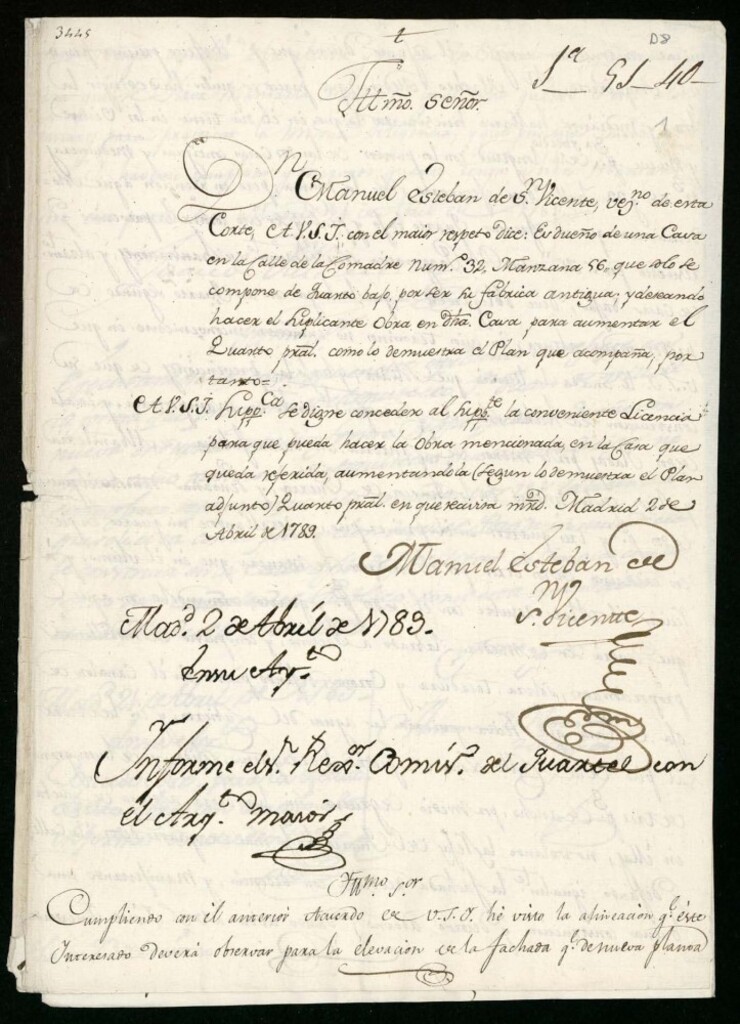 3445
D8
1ª 51 40
1
Illmo. Señor
Dn. Manuel Esteban de Sn. Vicente, vezno. de esta
Corte, A V.S.I. con el maior respeto dice: Es dueño de una Casa
en la Calle de la Comadre Numo. 32, Manzana 56, que solo se
compone de Quarto bajo, por ser su fabrica antigua; y deseando
hacer el suplicante Obra en dha. Casa, para aumentar el
Quarto pral. como lo demuestra el Plan que acompaña, por
tanto=
A V.S.I. suppca. se digne conceder al suppte. la conveniente Licencia
para que pueda hacer la Obra mencionada, en la Casa que
queda referida, aumentandola (segun lo demuestra el Plan
adjunto) Quarto pral. en que recivira mrd. Madrid 2 de
Abril de 1789.
Manuel Esteban de
Sn. Vicente
Madd. 2 de Abril de 1789.
En su Aytto.
Informe el Sr. Rexor. Comisº. del Quartel con
el Arqto. maior
Illmo. Sor.
Cumpliendo con el anterior Acuerdo de V.S.I. hé visto la alineacion qe. este
Interesado deverá observar para la elevacion de la fachada qe. de nueva planta